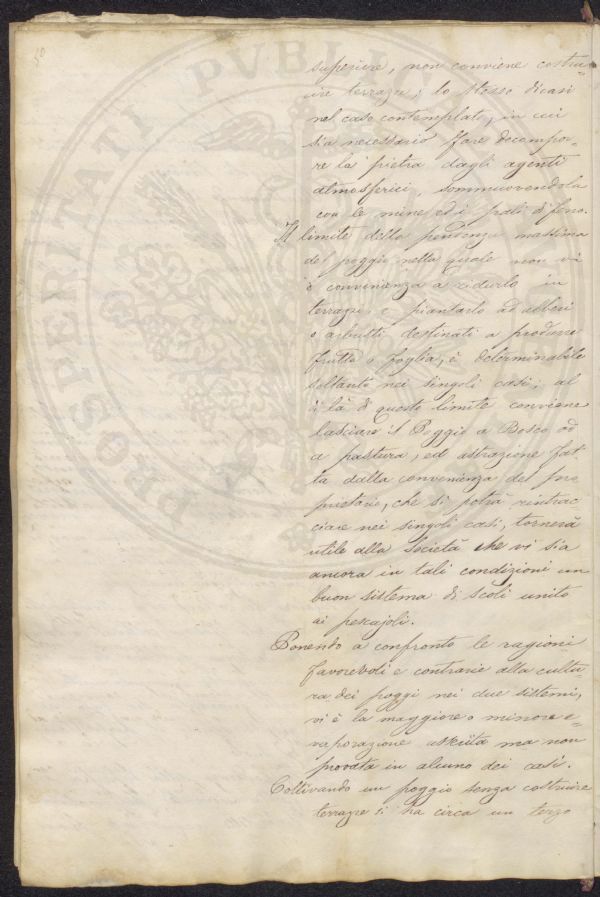 50
superiore, non conviene costru-
ire terrazze; lo stesso dicasi
nel caso contemplato, in cui
sia necessario fare decompor-
re la pietra dagli agenti
atmosferici, sommuovendola
con le mine ed i pali di ferro.
Il limite della pendenza massima
del poggio nella quale non vi
è convenienza a ridurlo in
terrazze e piantarlo ad alberi
o arbusti destinati a produrre
frutto o foglia, è determinabile
soltanto nei singoli casi; al
di là di questo limite conviene
lasciare il Poggio a Bosco od
a pastura, ed astrazione fat-
ta dalla convenienza del pro
prietario, che si potrà rintrac
ciare nei singoli casi, tornerà
utile alla Società che vi sia
ancora in tali condizioni un
buon sistema di scoli unito
ai pescajoli.
Ponendo a confronto le ragioni
favorevoli e contrarie alla cultu-
ra dei poggi nei due sistemi,
vi è la maggiore o minore e-
vaporazione asserita ma non
provata in alcuno dei casi.
Coltivando un poggio senza costruire
terrazze si ha circa un terzo
PROSPERITATI PVBLICAE